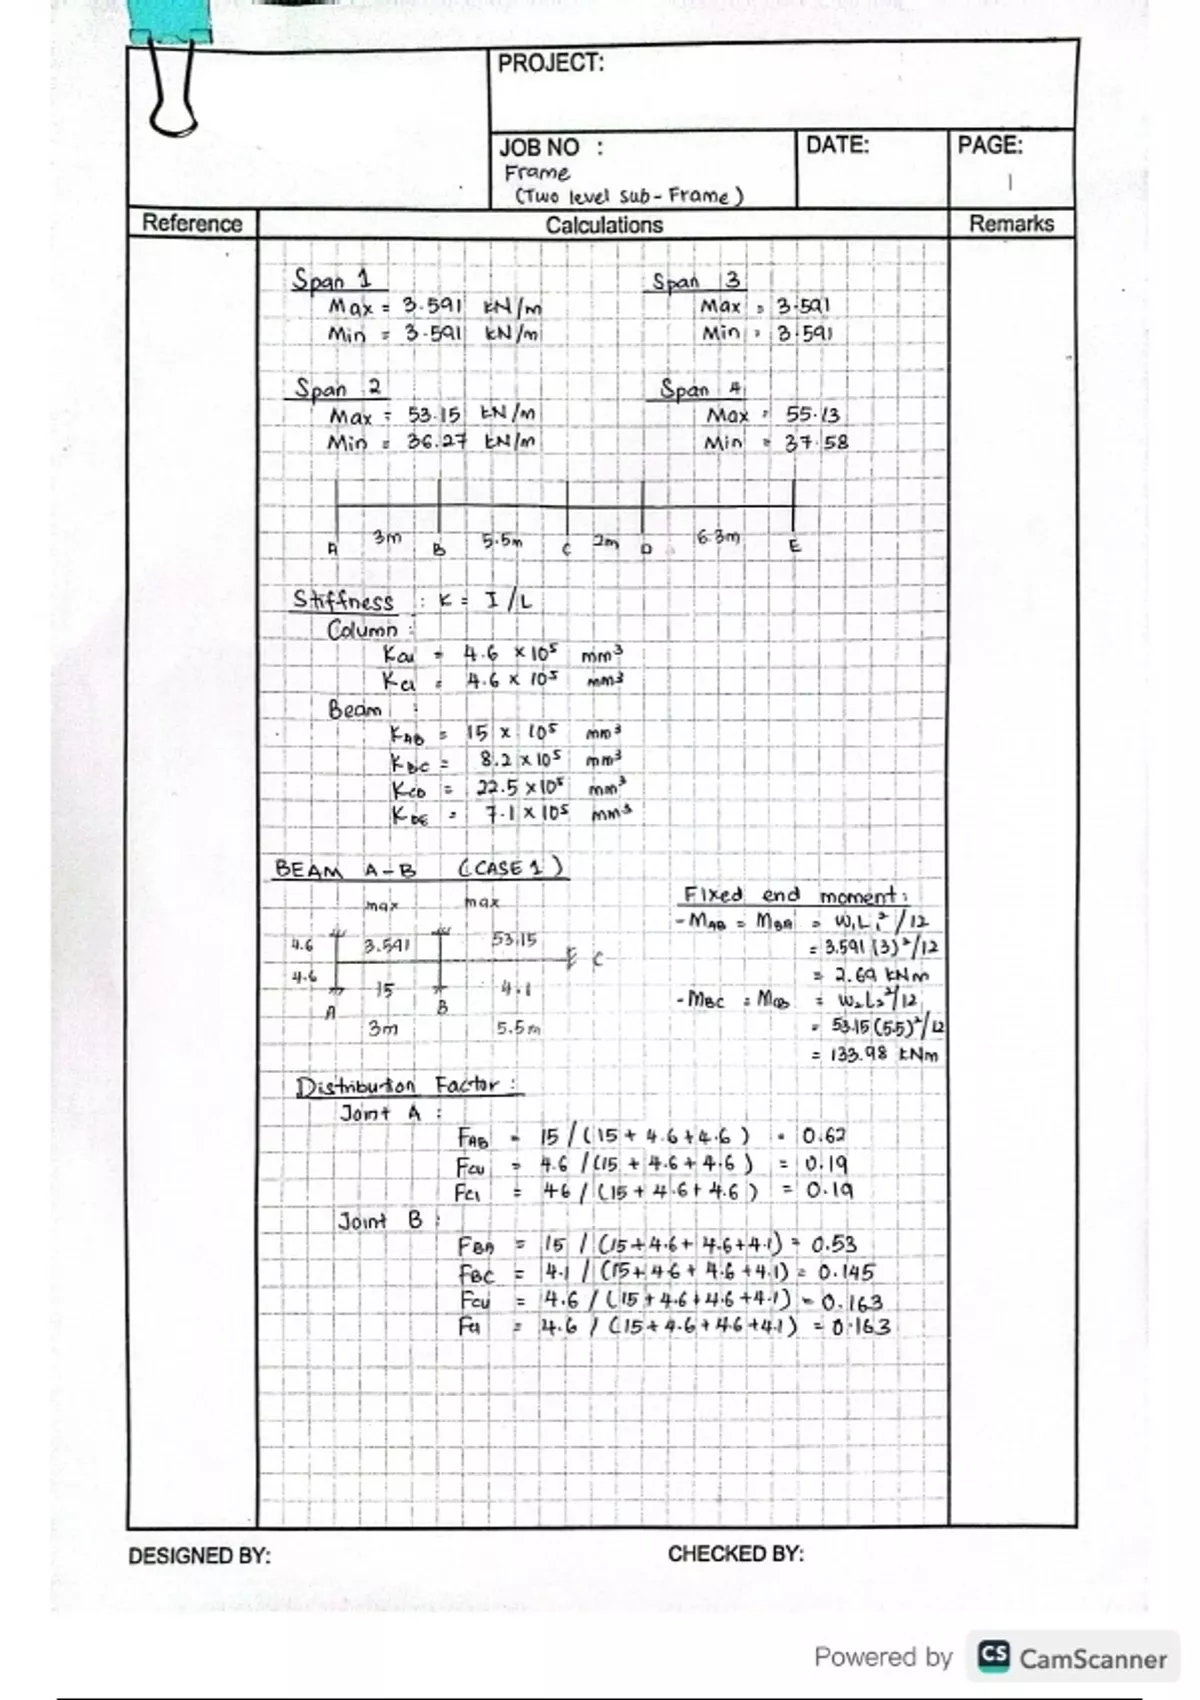 PROJECT:
JOB NO :
DATE:
PAGE:
Frame
(Two level sub-Frame)
1
Reference
Calculations
Remarks
Span 1
Max = 3.591 kN/m
Min = 3.591 kN/m
Span 3
Max = 3.591
Min = 3.591
Span 2
Max = 53.15 kN/m
Min = 36.27 kN/m
Span 4
Max = 55.13
Min = 37.58
3m 5.5m 2m 6.3m
A B C D E
Stiffness : K = I/L
Column :
Kcu = 4.6 × 10⁵ mm³
Kcl = 4.6 × 10⁵ mm³
Beam :
KAB = 15 × 10⁵ mm³
KBC = 8.2 × 10⁵ mm³
KCD = 22.5 × 10⁵ mm³
KDE = 7.1 × 10⁵ mm³
BEAM A-B (CASE 1)
max max
4.6 3.591 53.15
C
4.6 15 4.1
A B
3m 5.5m
Fixed end moment:
-MAB = MBA = W₁L₁²/12
= 3.591(3)²/12
= 2.69 kNm
-MBC = MCB = W₂L₂²/12
= 53.15(5.5)²/12
= 133.98 kNm
Distribution Factor :
Joint A :
FAB = 15/(15 + 4.6 + 4.6) = 0.62
Fcu = 4.6/(15 + 4.6 + 4.6) = 0.19
Fcl = 4.6/(15 + 4.6 + 4.6) = 0.19
Joint B :
FBA = 15 / (15+4.6+ 4.6+4.1) = 0.53
FBC = 4.1 / (15+4.6+ 4.6+4.1) = 0.145
Fcu = 4.6 / (15+4.6+4.6+4.1) = 0.163
Fcl = 4.6 / (15+4.6+4.6+4.1) = 0.163
DESIGNED BY:
CHECKED BY:
Powered by CS CamScanner